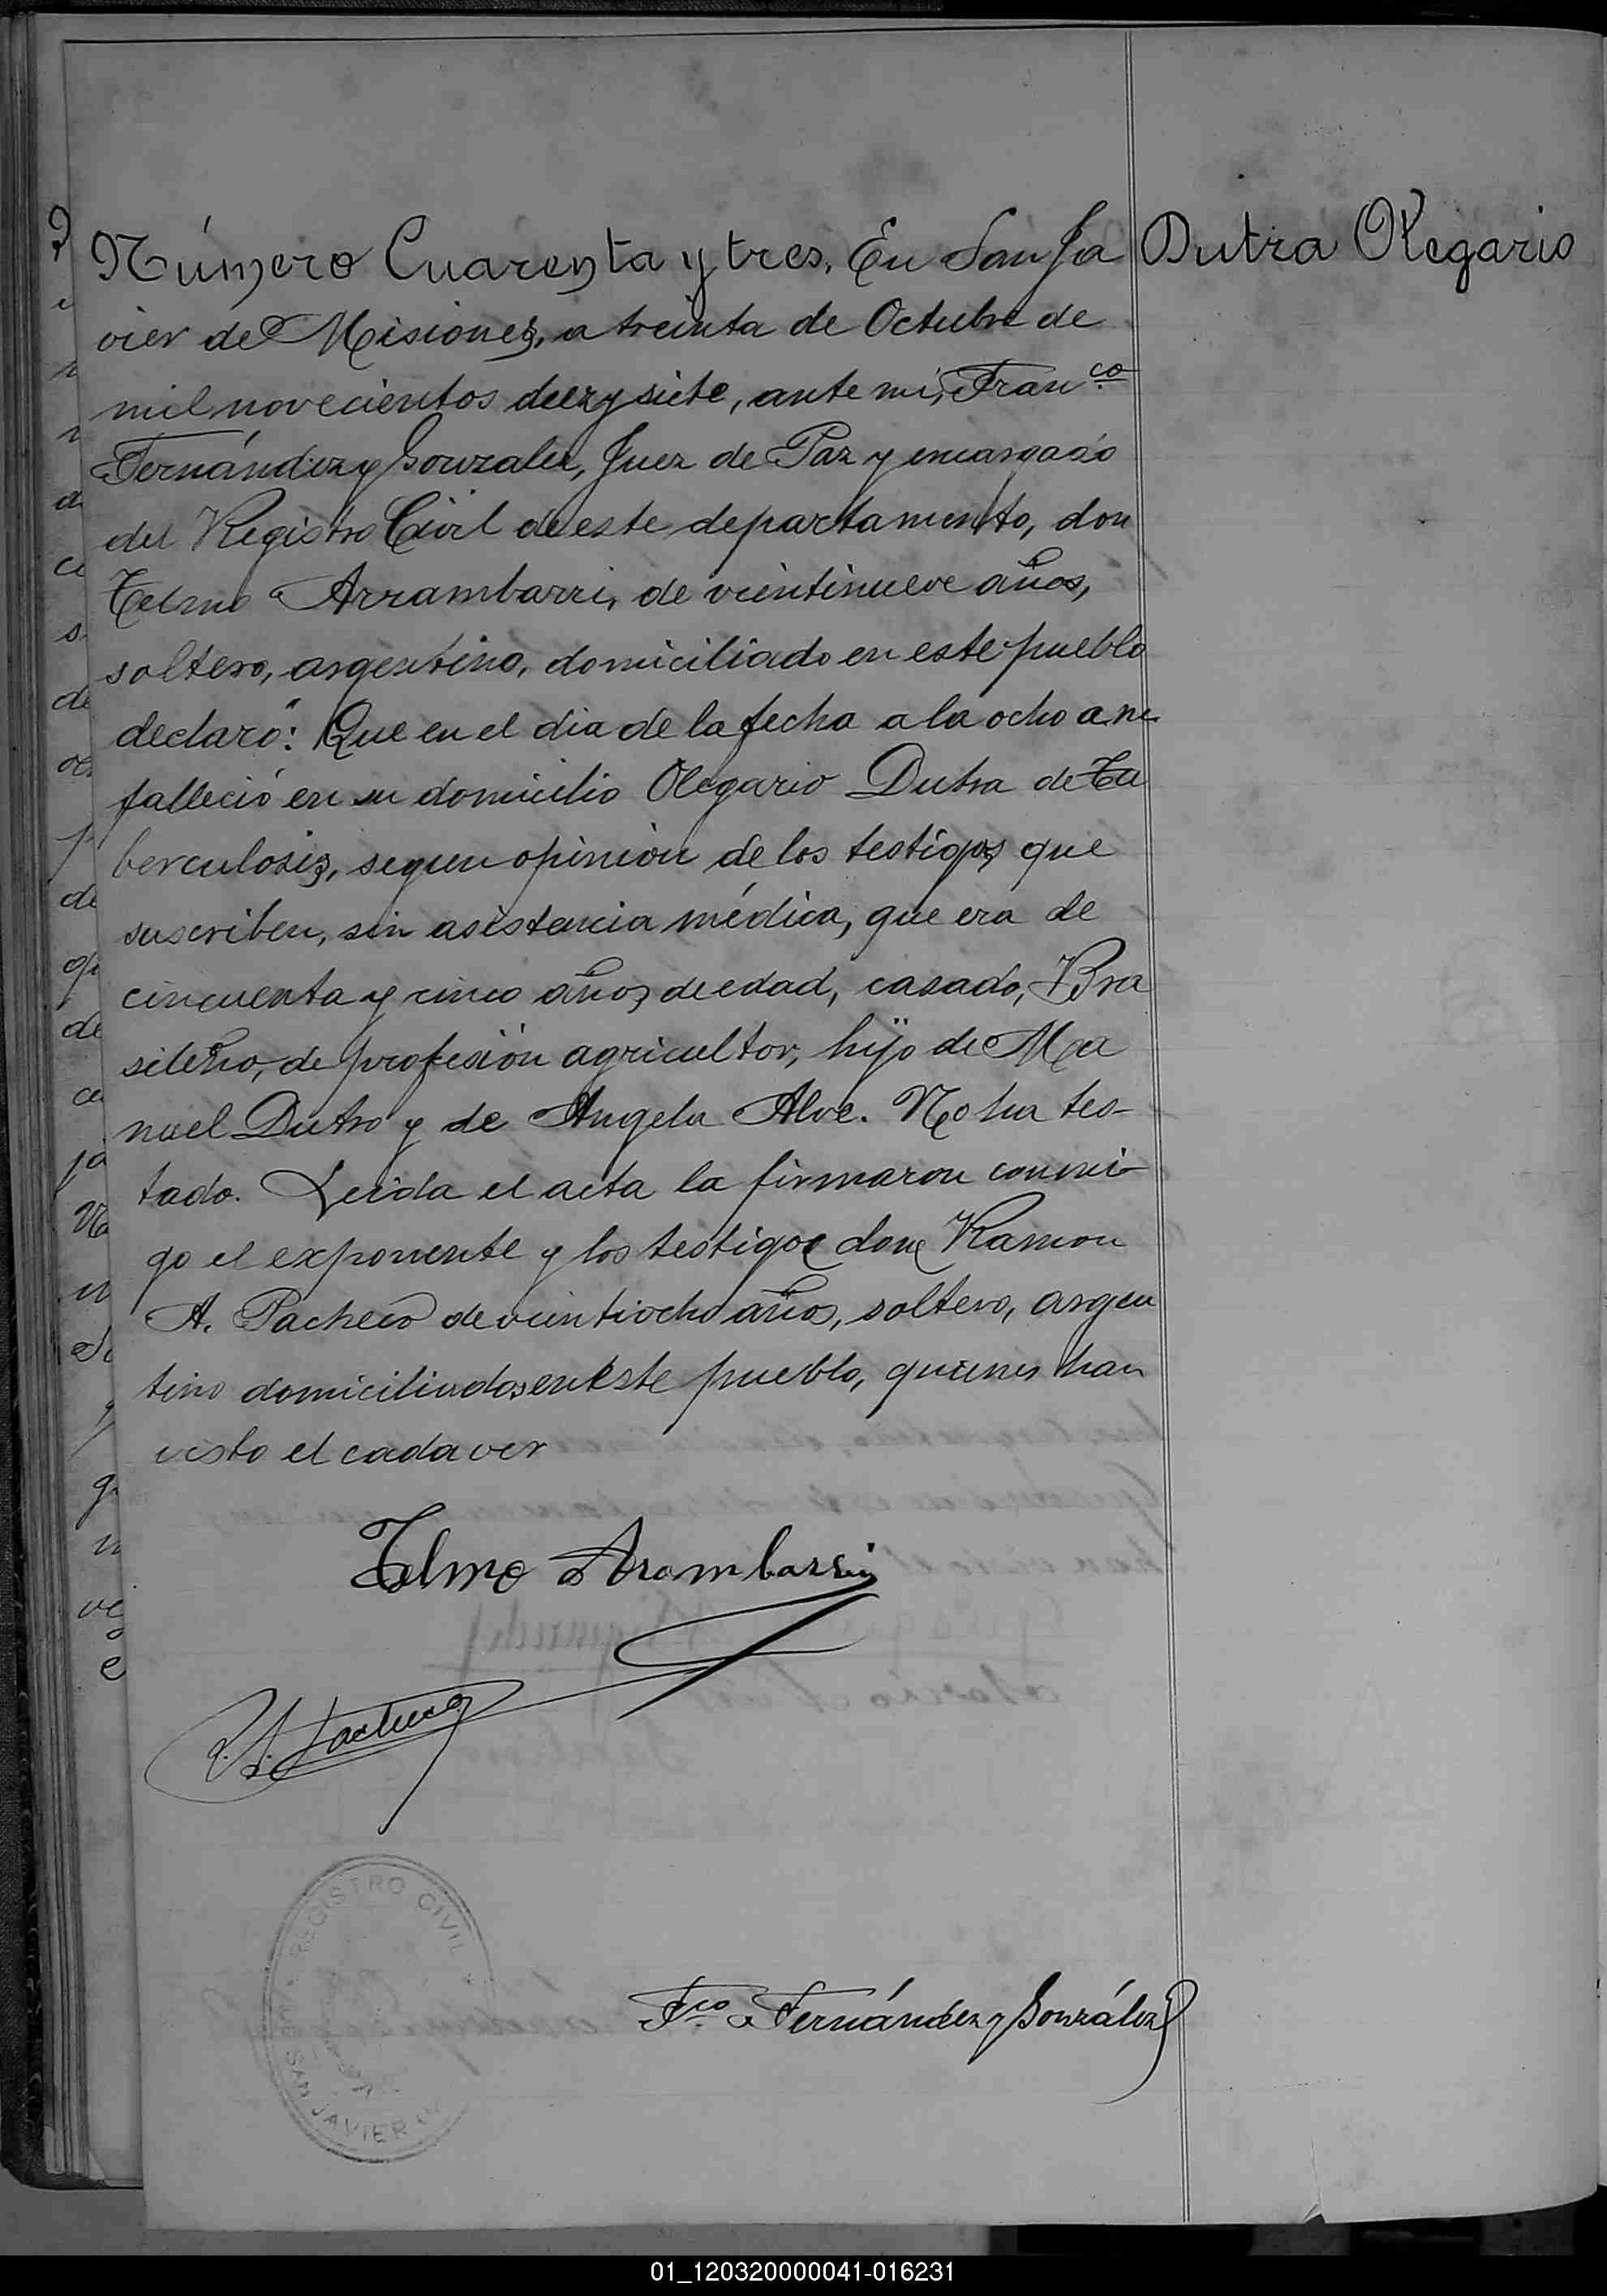 Número Cuarenta y tres. En San Ja
Dutra Olegario
vier de Misiones, a treinta de Octubre de
mil novecientos diez y siete, ante mi, Fran.co
Fernández y Gonzalez, Juez de Paz y encargado
del Registro Civil de este departamento, don
Telmo Arrambarri, de veintinueve años,
soltero, argentino, domiciliado en este pueblo
declaró: Que en el dia de la fecha a la ocho a.m.
falleció en su domicilio Olegario Dutra de Tu
berculosis, segun opinion de los testigos que
suscriben, sin asistencia médica, que era de
cincuenta y cinco años de edad, casado, Bra
sileño, de profesión agricultor, hijo de Ma
nuel Dutra y de Angela Alve. No ha tes-
tado. Leida el acta la firmaron conmi-
go el exponente y los testigos don Ramon
A. Pacheco de veintiocho años, soltero, argen
tino domiciliados en este pueblo, quienes han
visto el cadaver
Telmo Arambarri
R. A. Pacheco
REGISTRO CIVIL
SAN JAVIER
Fco. Fernández y González
01_120320000041-016231